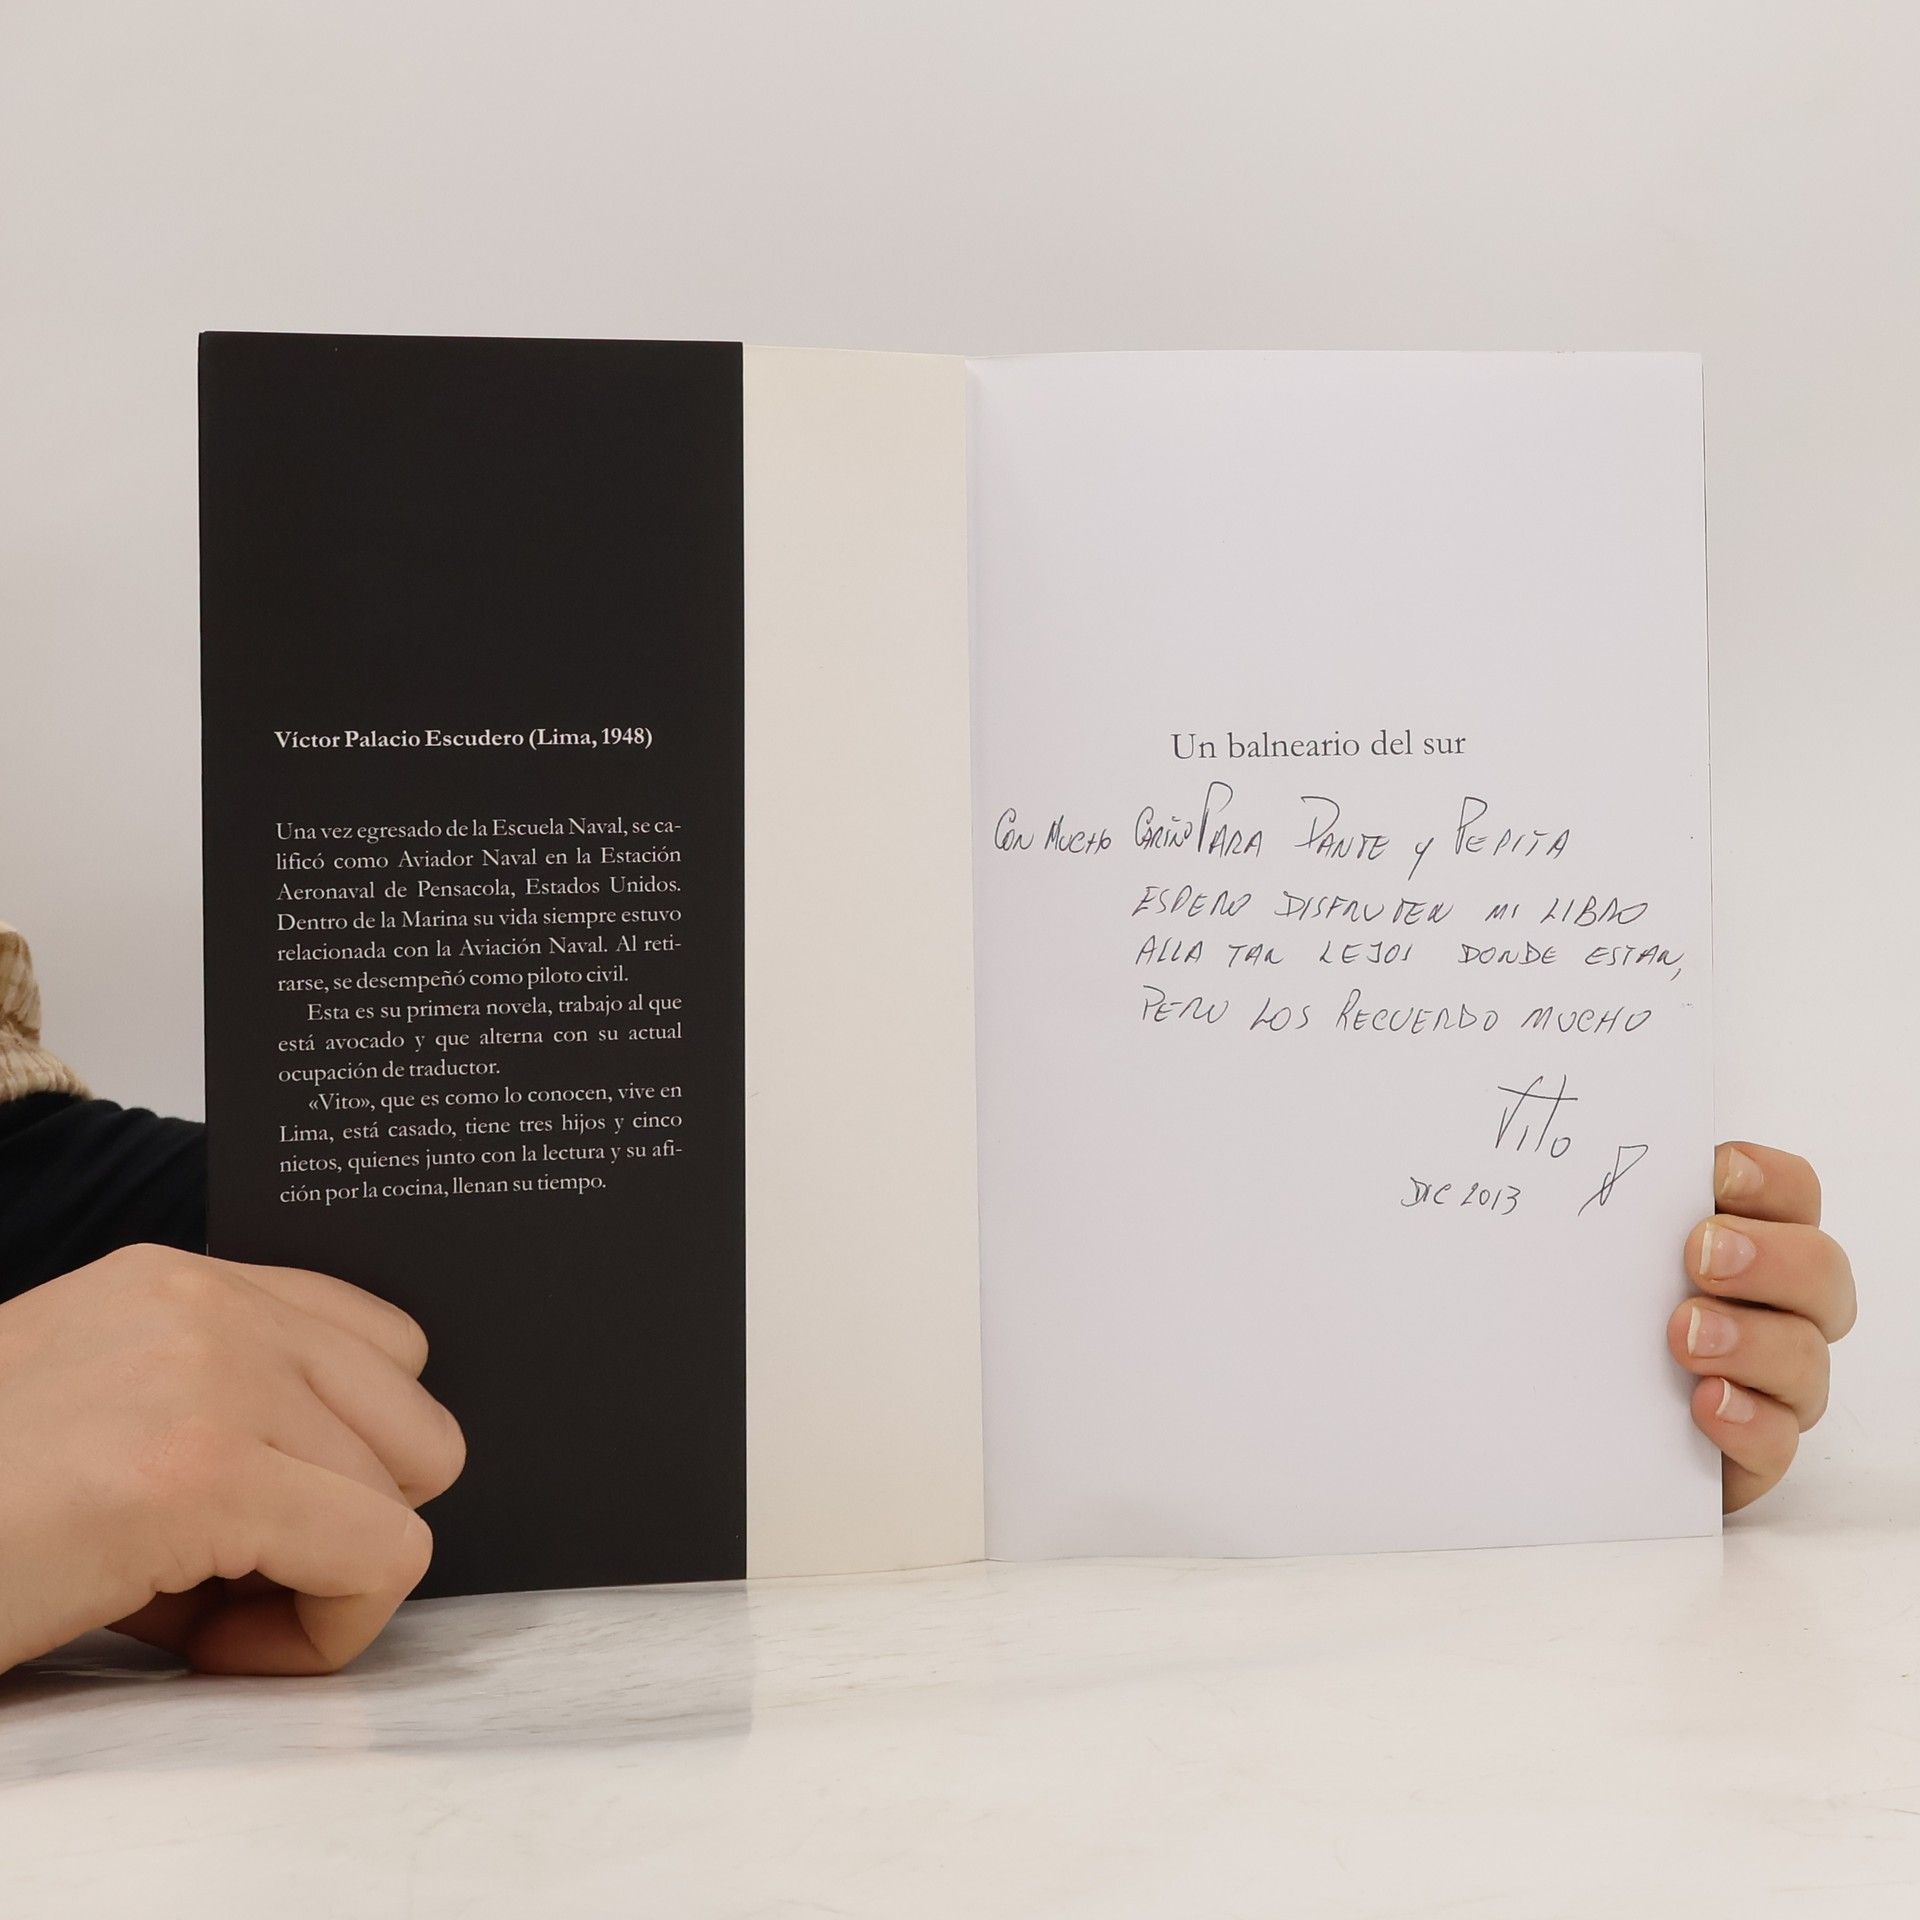 Víctor Palacio Escudero (Lima, 1948)
Una vez egresado de la Escuela Naval, se ca-
lificó como Aviador Naval en la Estación
Aeronaval de Pensacola, Estados Unidos.
Dentro de la Marina su vida siempre estuvo
relacionada con la Aviación Naval. Al reti-
rarse, se desempeñó como piloto civil.
Esta es su primera novela, trabajo al que
está avocado y que alterna con su actual
ocupación de traductor.
«Vito», que es como lo conocen, vive en
Lima, está casado, tiene tres hijos y cinco
nietos, quienes junto con la lectura y su afi-
ción por la cocina, llenan su tiempo.
Un balneario del sur
CON MUCHO CARIÑO PARA DANTE y PEPITA
ESPERO DISFRUTEN MI LIBRO
ALLA TAN LEJOS DONDE ESTAN,
PERO LOS RECUERDO MUCHO
VITO
DIC 2013